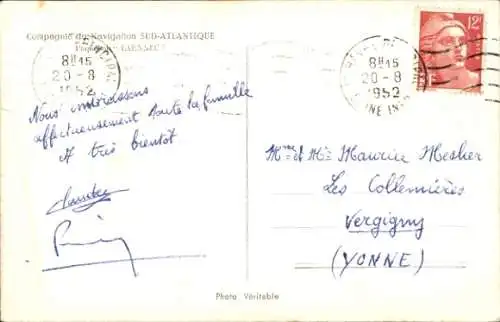 Compagnie de Navigation SUD-ATLANTIQUE
Paquebot "LAENNEC"
8H15
20-8
1952
8H15
20-8
1952
12F
Nous embrassons
affectueusement toute la famille
A très bientôt
Mme et Mr Maurice Mesher
Les Collemières
Vergigny
(YONNE)
Photo Véritable